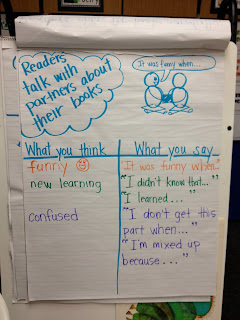 Readers
talk with
partners about
their books
It was funny when...
What you think
What you say
funny
It was funny when..."
new learning
"I didn't know that..."
"I learned..."
confused
"I don't get this
part when..."
"I'm mixed up
because..."